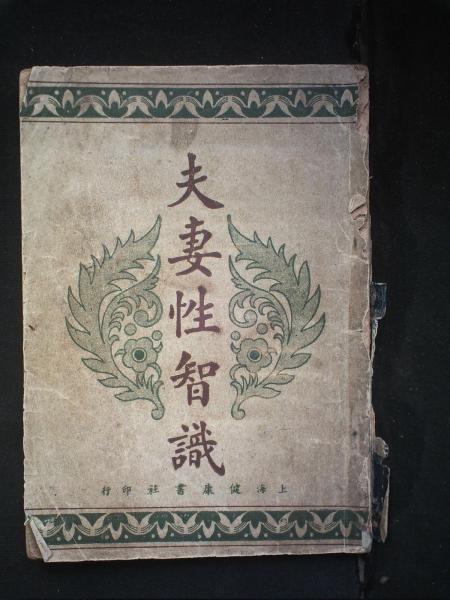 夫妻性智識
上海健康書社印行